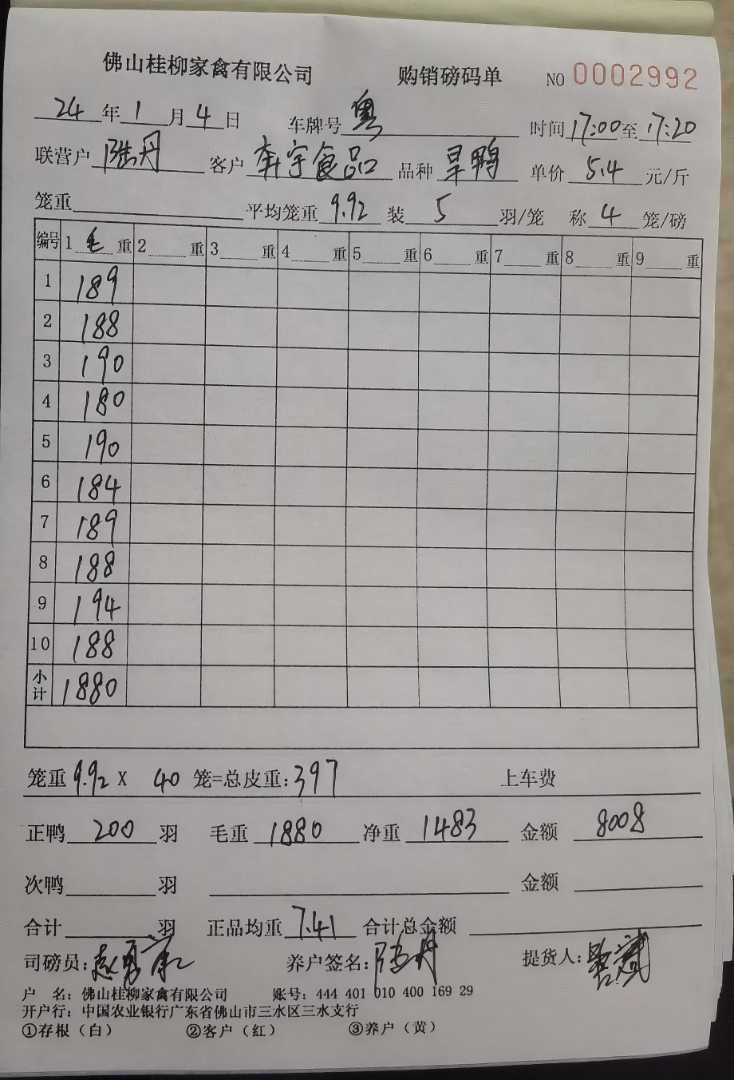 佛山桂柳家禽有限公司 购销磅码单 NO 0002992
24年1月4日 车牌号 粤 时间 17:00至17:20
联营户 陆丹 客户 宇食品 品种 旱鸭 单价 5.4 元/斤
笼重 平均笼重 9.92 装 5 羽/笼 称 4 笼/磅
编号 1 毛 重 2 重 3 重 4 重 5 重 6 重 7 重 8 重 9 重
1 189
2 188
3 190
4 180
5 190
6 184
7 189
8 188
9 194
10 188
小计 1880
笼重 9.92 X 40 笼=总皮重: 397 上车费
正鸭 200 羽 毛重 1880 净重 1483 金额 8008
次鸭 羽 金额
合计 羽 正品均重 7.41 合计总金额
司磅员: 养户签名: 陆丹 提货人:
户 名: 佛山桂柳家禽有限公司 账号: 444 401 010 400 169 29
开户行: 中国农业银行广东省佛山市三水区三水支行
①存根(白) ②客户(红) ③养户(黄)